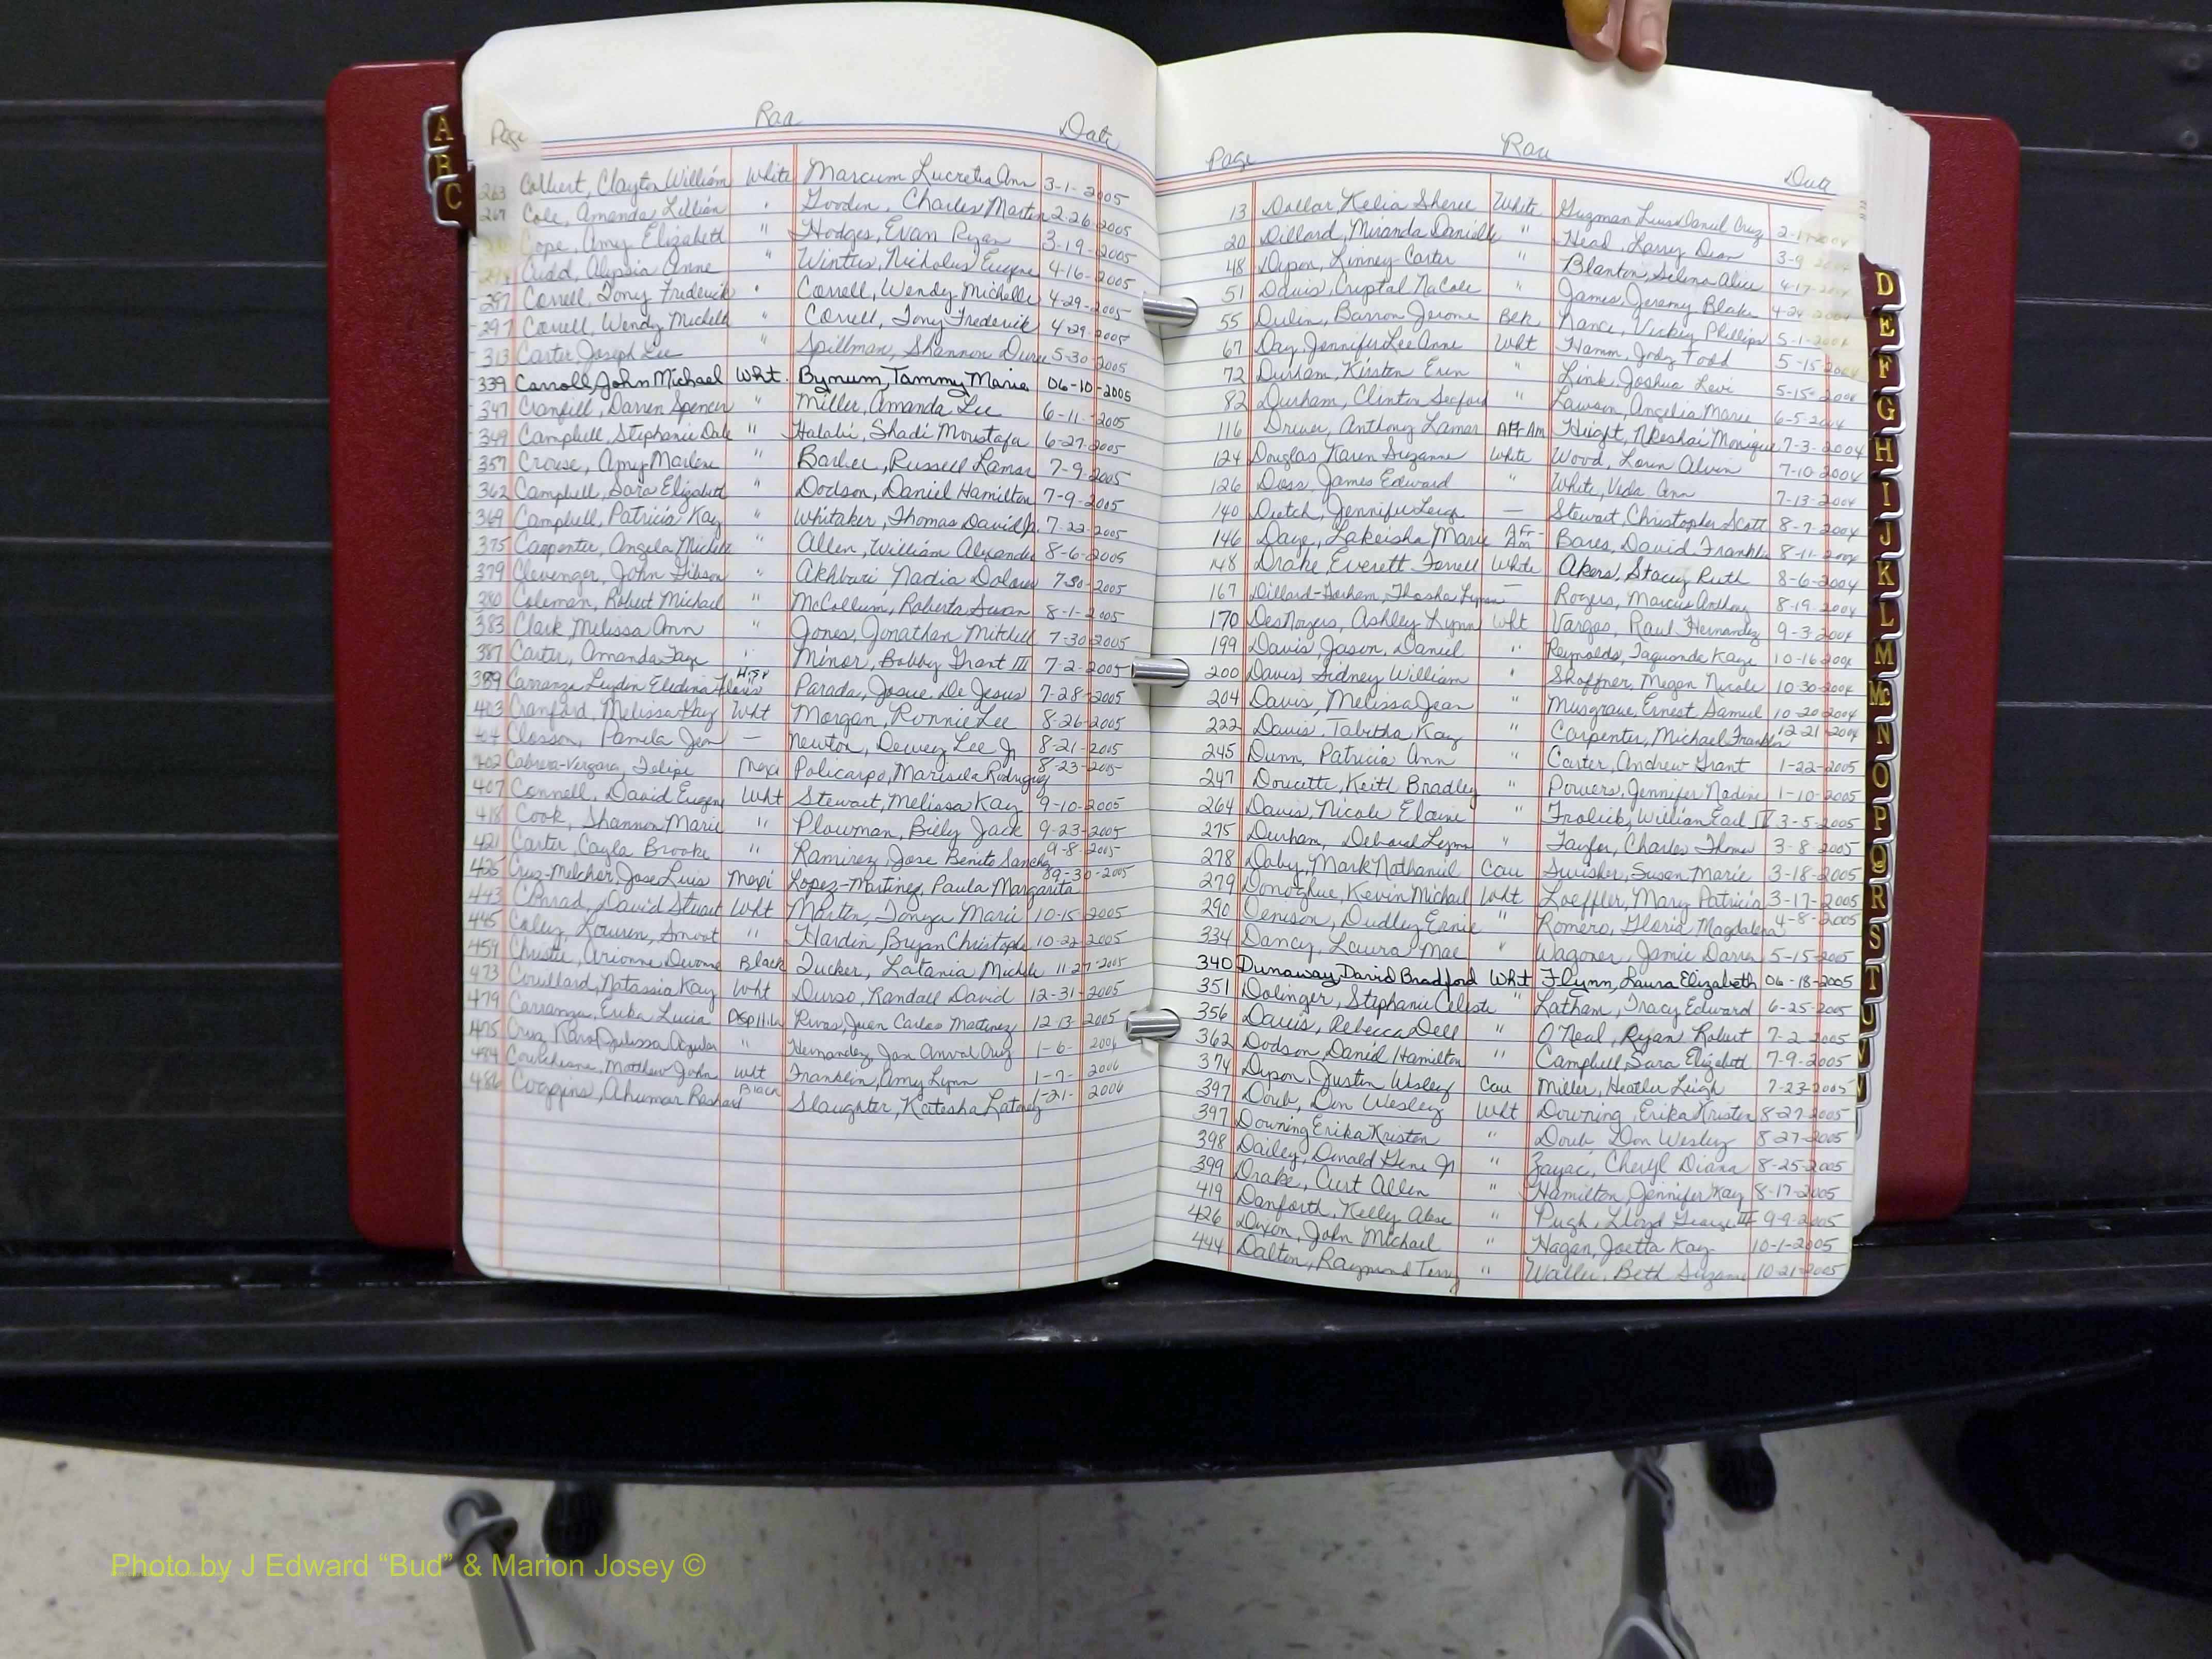 A
B
C
Page Race Date
263 Colbert, Clayton William White Marcum Lucretia Ann 3-1-2005
267 Cole, Amanda Lillian " Gooden, Charles Martin 2-26-2005
Cope, Amy Elizabeth " Hodges, Evan Ryan 3-19-2005
Cudd, Alyssia Anne " Winters, Nicholus Eugene 4-16-2005
297 Correll, Tony Frederick " Correll, Wendy Michelle 4-29-2005
297 Correll, Wendy Michelle " Correll, Tony Frederick 4-29-2005
313 Carter, Joseph Lee " Spillman, Shannon 5-30-2005
339 Carroll, John Michael Wht. Bynum, Tammy Maria 06-10-2005
347 Cranfill, Darren Spencer " Miller, Amanda Lee 6-11-2005
349 Campbell, Stephanie Dale " Halabi, Shadi Moustafa 6-27-2005
357 Crouse, Amy Marlene " Barbee, Russell Lamar 7-9-2005
362 Campbell, Sara Elizabeth " Dodson, Daniel Hamilton 7-9-2005
369 Campbell, Patricia Kay " Whitaker, Thomas David Jr. 7-22-2005
375 Carpenter, Angela Michele " Allen, William Alexander 8-6-2005
379 Clevenger, John Gibson " Akhbari, Nadia Dolores 7-30-2005
380 Coleman, Robert Michael " McCollum, Roberta Susan 8-1-2005
383 Clark, Melissa Ann " Jones, Jonathan Mitchell 7-30-2005
387 Carter, Amanda Faye " Minor, Bobby Grant III 7-2-2005
389 Carranza Leydin Eledina Flores Hisp Parada, Josue De Jesus 7-28-2005
403 Cranford, Melissa Gay Wht Morgan, Ronnie Lee 8-26-2005
404 Closson, Pamela Jean — Newton, Dewey Lee Jr 8-21-2005
402 Cabrera-Vergara, Felipe Mexi Policarpo, Marisela Rodriguez 8-23-2005
407 Connell, David Eugene Wht Stewart, Melissa Kay 9-10-2005
418 Cook, Shannon Marie " Plowman, Billy Jack 9-23-2005
421 Carter, Cayla Brooke " Ramirez, Jose Benito Sanchez 9-8-2005
425 Cruz-Melcher, Jose Luis Mexi Lopez-Martinez, Paula Margarita 09-30-2005
443 Conrad, David Stuart Wht Martin, Tonya Marie 10-15-2005
445 Coley, Lowren, Smoot " Hardin, Bryan Christopher 10-22-2005
459 Christie, Arionne Devonne Black Tucker, Latania Michele 11-27-2005
473 Couillard, Natassia Kay Wht Durso, Randall David 12-31-2005
479 Carranza, Erika Lucia Rivas, Juan Carlos Martinez 12-13-2005
475 Cruz, Karol Julissa Aguilar " Hernandez, Jose Cruz 1-6-2006
484 Matthew John Wht Franklin, Amy Lynn 1-7-2006
486 Coggins, Ahumar Rashard Black Slaughter, Katosha 1-21-2006
Page Race Date
13 Dollar, Kelia Sheree White Guzman Luis Daniel Cruz 2-17-2004
20 Dillard, Miranda Danielle " Head, Larry Dean 3-9-2004
48 Dyson, Linney Carter " Blanton, Selena Alice 4-17-2004
51 Davis, Crystal NaCole " James, Jeremy Blake 4-24-2004
55 Dulin, Barron Jerome Blk Nance, Vickey Phillips 5-1-2004
67 Day, Jennifer Lee Anne Wht Hamm, Jody Todd 5-15-2004
72 Durham, Kirsten Erin " Link, Joshua Levi 5-15-2004
82 Durham, Clinton " Lawson, Angelia Marie 6-5-2004
116 Driver, Anthony Lamar Aff-Am Monique 7-3-2004
124 Douglas Karen Suzanne White Wood, Loren Alvin 7-10-2004
126 Doss, James Edward " White, Veda Ann 7-13-2004
140 Dietch, Jennifer Leigh — Stewart, Christopher Scott 8-7-2004
146 Daye, Lakeisha Marie Afr-Am Bores, David Franklin 8-11-2004
148 Drake, Everett Farrell White Akers, Stacey Ruth 8-6-2004
167 Dillard-Gorham, Thasha Lynn — Rogers, Marcus Anthony 8-19-2004
170 DesNoyers, Ashley Lynn Wht Vargas, Raul Hernandez 9-3-2004
199 Davis, Jason, Daniel " Reynolds, Taquonda Kaye 10-16-2004
200 Davis, Sidney William " Shoffner, Megan Nicole 10-30-2004
204 Davis, Melissa Jean " Musgrave, Ernest Samuel 10-20-2004
222 Davis, Tabitha Kay " Carpenter, Michael Franklin 12-21-2004
245 Dunn, Patricia Ann " Carter, Andrew Grant 1-22-2005
247 Doucette, Keith Bradley " Powers, Jennifer Nadine 1-10-2005
264 Davis, Nicole Elaine " Frolick, William Earl IV 3-5-2005
275 Durham, Deborah Lynne " Taylor, Charles Thomas 3-8-2005
278 Daby, Mark Nathaniel Cau Swisher, Susan Marie 3-18-2005
279 Donoghue, Kevin Michael Wht Loeffler, Mary Patricia 3-17-2005
290 Denison, Dudley Ernie " Romero, Gloria Magdalena 4-8-2005
334 Dancy, Laura Mae " Wagoner, Jamie Darren 5-15-2005
340 Dunaway, David Bradford Wht Flynn, Laura Elizabeth 06-18-2005
351 Dolinger, Stephanie Celeste " Latham, Tracy Edward 6-25-2005
356 Davis, Rebecca Dell " O'Neal, Ryan Robert 7-2-2005
362 Dodson, Daniel Hamilton " Campbell, Sara Elizabeth 7-9-2005
374 Dyson, Justin Wesley Cau Miller, Heather Leigh 7-23-2005
397 Doub, Don Wesley Wht Downing, Erika Kristen 8-27-2005
397 Downing Erika Kristen " Doub, Don Wesley 8-27-2005
398 Dailey, Donald Gene Jr " Zayac, Cheryl Diana 8-25-2005
399 Drake, Curt Allen " Hamilton, Jennifer Kay 8-17-2005
419 Danforth, Kelly " Pugh, Lloyd George III 9-9-2005
426 Dixon, John Michael " Hagan, Joetta Kay 10-1-2005
444 Dalton, Raymond Terry " Waller, Beth Suzanne 10-21-2005
D
E
F
G
H
I
J
K
L
M
Mc
N
O
P
Q
R
S
T
U
V
W
Photo by J Edward “Bud” & Marion Josey ©